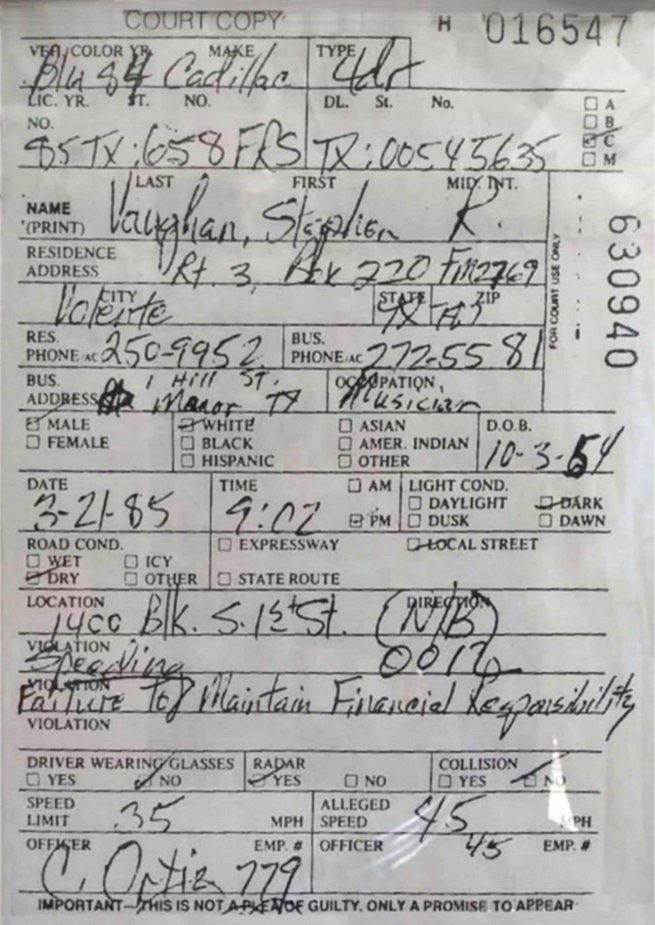 COURT COPY H 016547
VEH. COLOR YR. MAKE TYPE
Blu 84 Cadillac 4dr
LIC. YR. ST. NO. DL. St. No. ☐ A
NO. ☐ B
85 TX:658 FRS TX:00545635 ☑ C
☐ M
LAST FIRST MID. INT.
NAME
(PRINT) Vaughan, Stephen R.
RESIDENCE
ADDRESS Rt. 3, Box 220 FM2769
CITY STATE ZIP
Volente TX
FOR COURT USE ONLY
630940
RES. BUS.
PHONE/AC 250-9952 PHONE/AC 272-5581
BUS. 1 Hill St. OCCUPATION
ADDRESS Manor TX Musician
☑ MALE ☑ WHITE ☐ ASIAN D.O.B.
☐ FEMALE ☐ BLACK ☐ AMER. INDIAN
☐ HISPANIC ☐ OTHER 10-3-54
DATE TIME ☐ AM LIGHT COND.
3-21-85 9:02 ☐ DAYLIGHT ☑ DARK
☑ PM ☐ DUSK ☐ DAWN
ROAD COND. ☐ EXPRESSWAY ☑ LOCAL STREET
☐ WET ☐ ICY
☑ DRY ☐ OTHER ☐ STATE ROUTE
LOCATION DIRECTION
1400 Blk. S. 1st St. (N/B)
VIOLATION
Speeding
VIOLATION
Failure To Maintain Financial Responsibility
VIOLATION
DRIVER WEARING GLASSES RADAR COLLISION
☐ YES ☑ NO ☑ YES ☐ NO ☐ YES ☑ NO
SPEED ALLEGED
LIMIT 35 MPH SPEED 45 MPH
OFFICER EMP. # OFFICER 45 EMP. #
C. Ortiz 779
IMPORTANT—THIS IS NOT A PLEA OF GUILTY, ONLY A PROMISE TO APPEAR